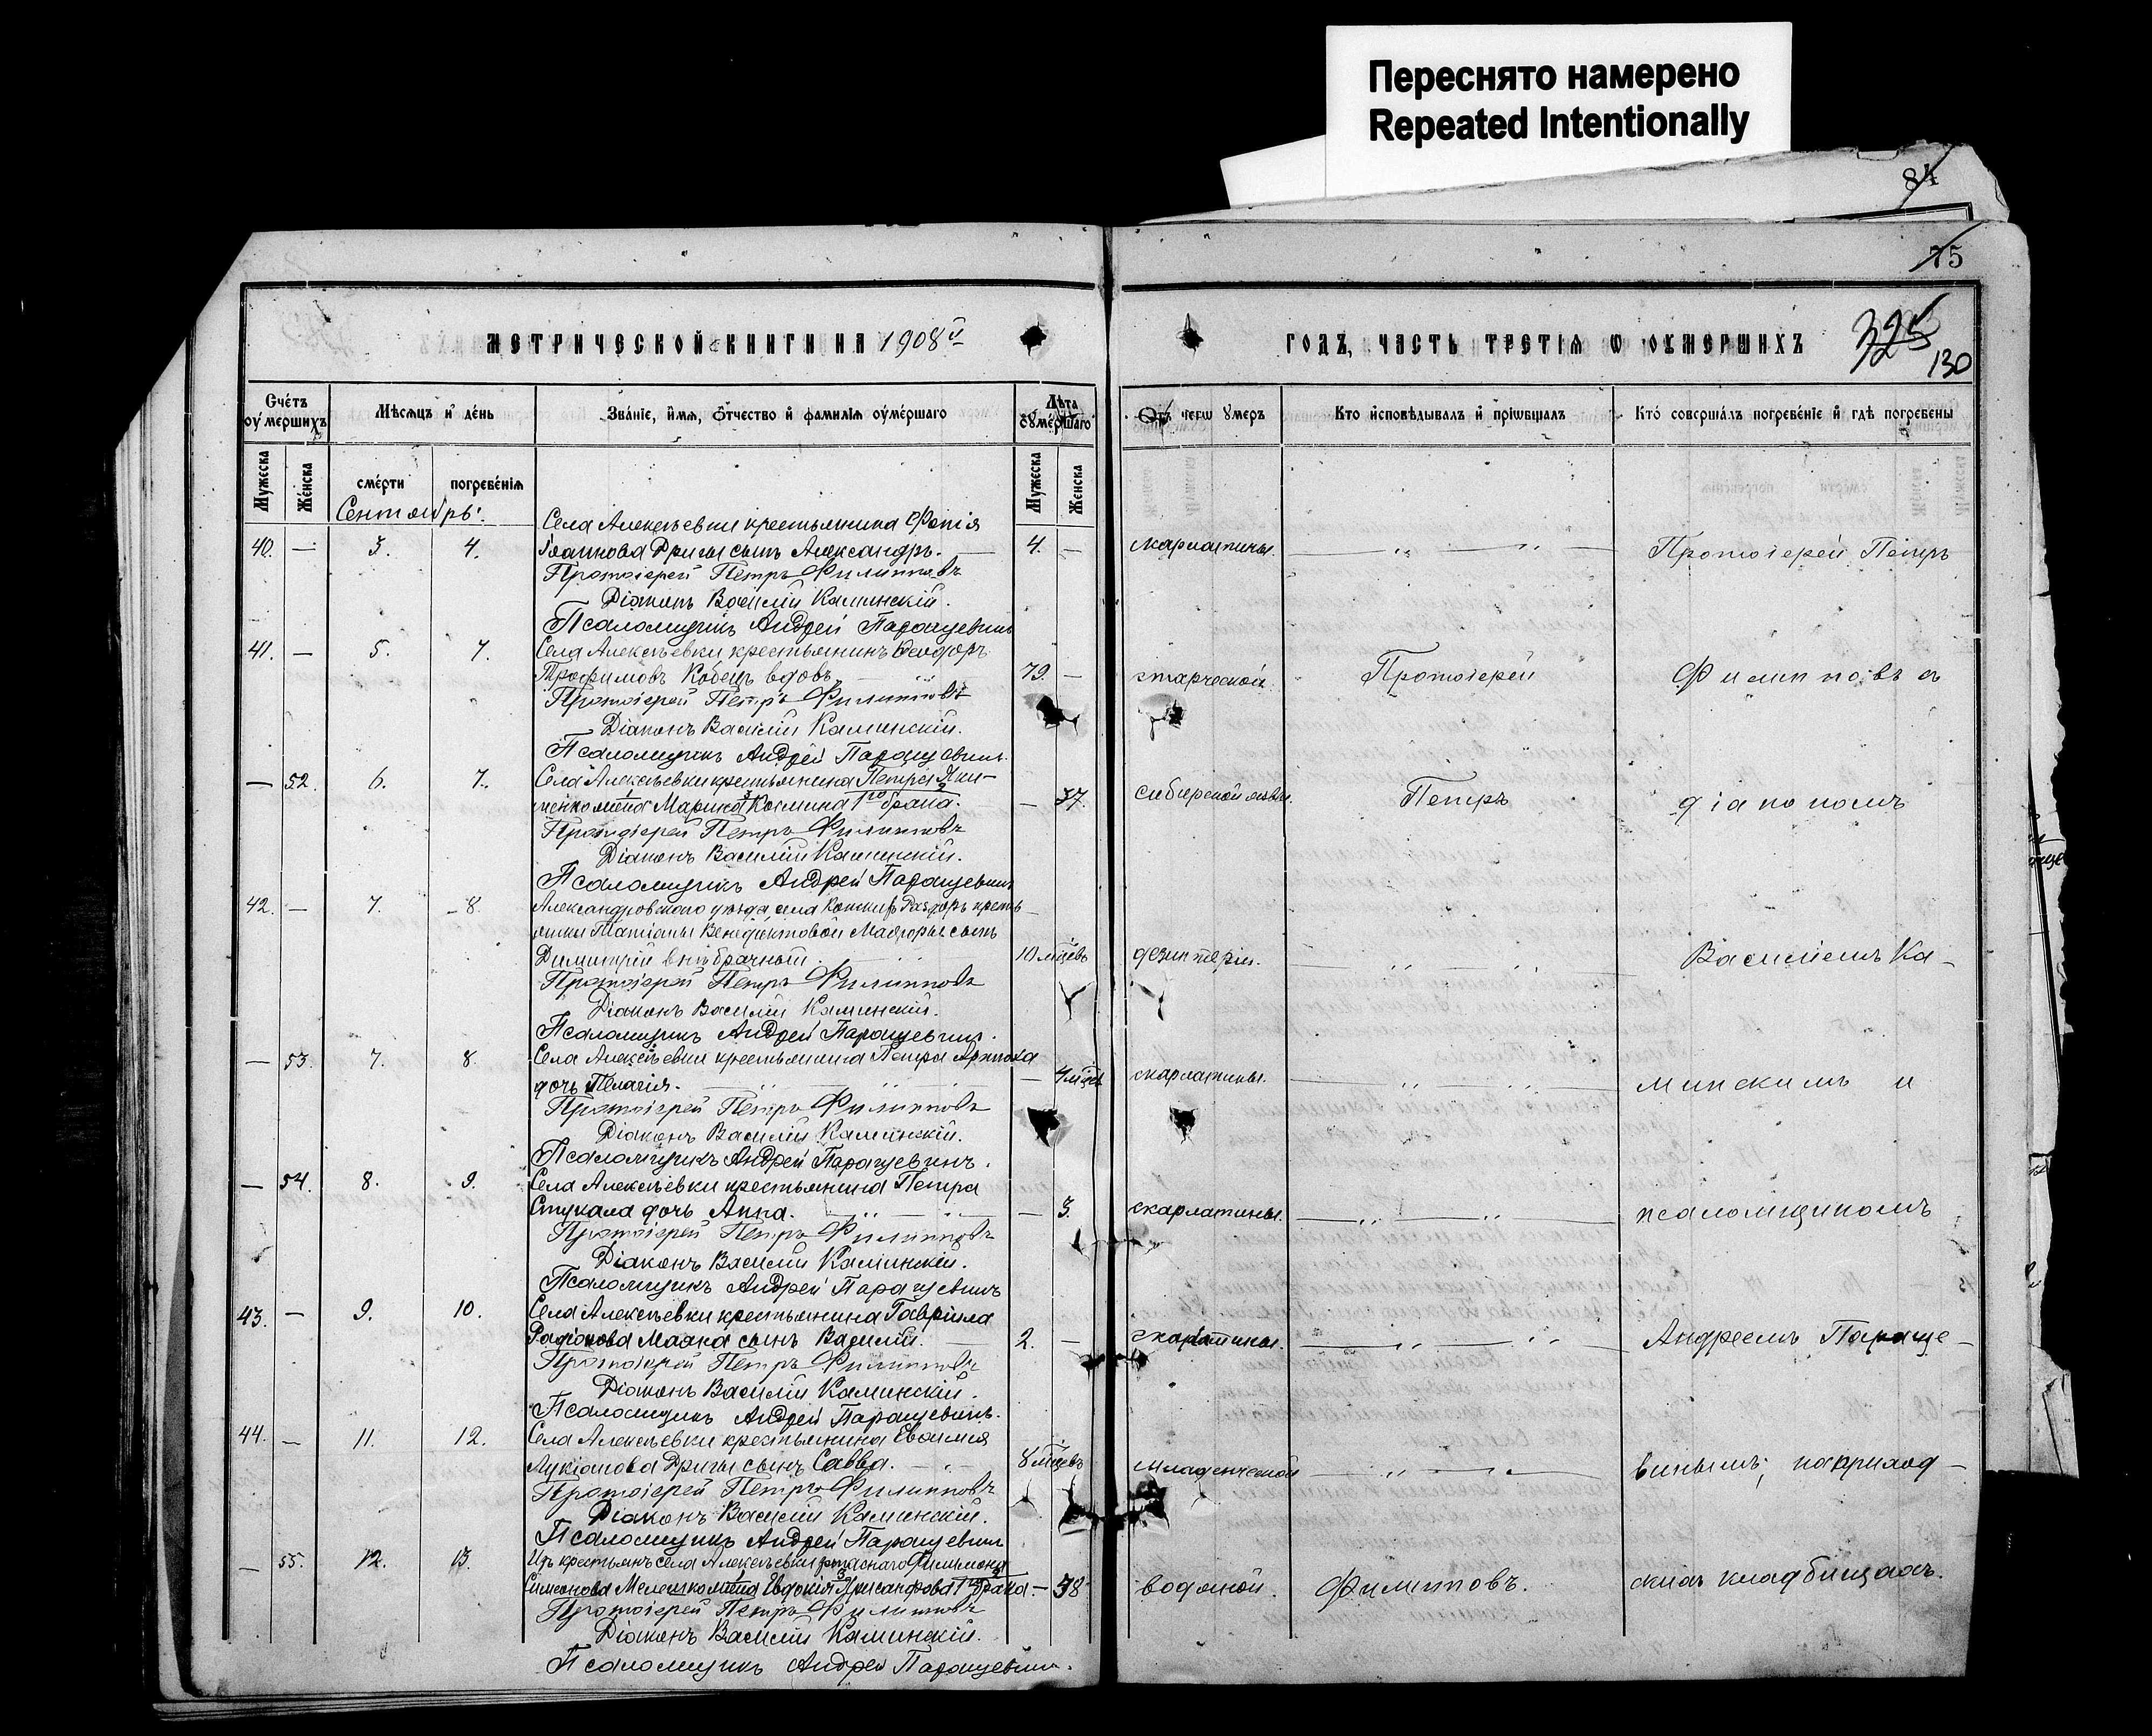 Переснято намерено
Repeated Intentionally
84
75
МЕТРИЧЕСКОЙ КНИГИ НА 1908й
ГОДЪ, ЧАСТЬ ТРЕТІѦ Ѡ ОУМЕРШИХЪ
325
130
Счётъ оумершихъ
Мѣсѧцъ и день
Званіе, имѧ, ѻтчество и фамиліѧ оумершаго
Лѣта оумершаго
Отъ чегѡ умеръ
Кто исповѣдывалъ и пріѡбщалъ
Кто совершалъ погребеніе и гдѣ погребены
Мужеска
Женска
смерти
погребеніѧ
Мужеска
Женска
Сентябрь.
Села Алексѣевки крестьянина Фотія
40. — 3. 4. Іоаннова Дриги сынъ Александръ. — 4. — скарлатины. Протоіерей Петръ
Протоіерей Петръ Филипповъ
Діаконъ Василій Каминскій.
Псаломщикъ Андрей Паращевинъ
41. — 5. 7. Села Алексѣевки крестьянинъ Ѳеодоръ
Трофимовъ Кобецъ вдовъ. 79. — старческой. Протоіерей Филипповъ съ
Протоіерей Петръ Филипповъ
Діаконъ Василій Каминскій.
Псаломщикъ Андрей Паращевинъ.
— 52. 6. 7. Села Алексѣевки крестьянина Петра Яки-
менко жена Марина Космина 1го брака. — 37. сибирской язвы. Петръ діакономъ
Протоіерей Петръ Филипповъ
Діаконъ Василій Каминскій.
Псаломщикъ Андрей Паращевинъ
42. — 7. 8. Александровскаго уѣзда, села Раздоръ кресть-
янки Татіаны Венедиктовой сынъ
Димитрій внѣбрачный. 10 мцевъ дезинтеріи. Василіемъ Ка-
Протоіерей Петръ Филипповъ
Діаконъ Василій Каминскій.
Псаломщикъ Андрей Паращевинъ.
— 53. 7. 8. Села Алексѣевки крестьянина Петра
дочь Пелагія. — скарлатины. минскимъ и
Протоіерей Петръ Филипповъ
Діаконъ Василій Каминскій.
Псаломщикъ Андрей Паращевинъ.
— 54. 8. 9. Села Алексѣевки крестьянина Петра
Стукала дочь Анна. — 3. скарлатины. псаломщикомъ
Протоіерей Петръ Филипповъ
Діаконъ Василій Каминскій.
Псаломщикъ Андрей Паращевинъ
43. — 9. 10. Села Алексѣевки крестьянина Гавріила
Родіонова сынъ Василій. 2. — скарлатины. Андреемъ Параще-
Протоіерей Петръ Филипповъ
Діаконъ Василій Каминскій.
Псаломщикъ Андрей Паращевинъ.
44. — 11. 12. Села Алексѣевки крестьянина Евѳимія
Лукіанова Дриги сынъ Савва. 8 мцевъ младенческой винымъ, на приход-
Протоіерей Петръ Филипповъ
Діаконъ Василій Каминскій.
Псаломщикъ Андрей Паращевинъ
— 55. 12. 13. Изъ крестьянъ села Алексѣевки Филимона
Симеонова жена Евдокія 1го брака — 38 водяной. Филипповъ. скихъ кладбищахъ.
Протоіерей Петръ Филипповъ
Діаконъ Василій Каминскій.
Псаломщикъ Андрей Паращевинъ.